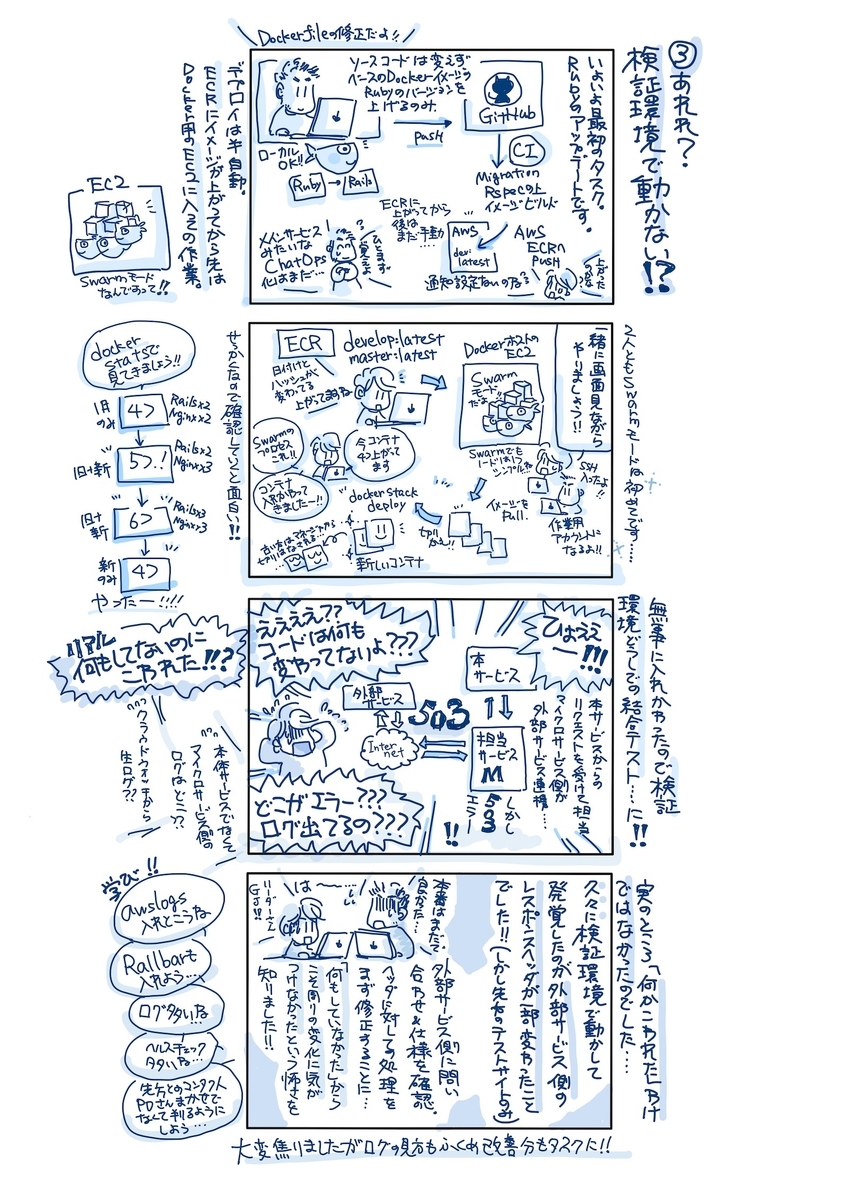 ③あれれ？
検証環境で動かない!?
Dockerfileの修正だよ!!
いよいよ最初のタスク。
Rubyのアップデートです。
ソースコードは変えず
ベースのDockerイメージの
Rubyのバージョンを
上げるのみ
GitHub
push
ローカル
OK!!
Ruby
Rails
CI
Migration
Rspecの上
イメージビルド
AWS
ECRへ
push
AWS
dev:
latest
通知設定ないの
ECRに
上がってから
後は
まだ手動…
メインサービス
みたいな
ChatOps
化はまだ…
デプロイは半自動。
ECRにイメージが上がってから先は
Docker用のEC2に入っての作業。
EC2
Swarmモード
なんですって!!
2人ともSwarmモードは初めてです……
一緒に画面見ながら
やりましょう!!
ECR
develop:latest
master:latest
日付けと
ハッシュが
変わってる
上がってますね
Dockerホストの
EC2
Swarm
モード
だよ
Swarmでも
ノードは1つ
シンプルね
SSH
入ったよ!!
作業用
アカウントに
なるよ!!
イメージを
Pull.
docker stack
deploy
新しいコンテナ
Swarmの
プロセス
これ!!
今コンテナ
4つ上がって
ます
コンテナ
入れかわって
きましたー!!
せっかくなので確認していくと面白い!!
docker
statsで
見てきましょう!!
旧
のみ
4つ
Railsx2
Nginxx2
旧+新
5つ!
Railsx2
Nginxx3
旧+
新
6つ
Railsx3
Nginxx3
新
のみ
4つ
やったー!!!!
無事に入れかわったので検証
環境どうしでの結合テスト…に!!
ひょええ
ー!!!
本
サービス
本サービスからの
リクエストを受けて担当
マイクロサービス側が
外部サービス連携…
担当
サービス
M
しかし
503
エラー
!!
外部
サービス
503
Internet
ええええ??
コードは何も
変わってないよ???
どこがエラー???
ログ出てるの???
リアル
何もしてないのに
こわれた!!!?
本体サービスでなくて
マイクロサービス側の
ログはどこ??
クラウドウォッチから
生ログ??
実のところ「何かこわれた」わけ
ではなかったのでした……
久々に検証環境で動かして
発覚したのが外部サービス側の
レスポンスヘッダが一部変わったこと
でした!!(しかし先方のテストサイトのみ)
本番はまだで
良かった…
外部サービス側に問い
合わせ&仕様を確認の
ヘッダに対しての処理を
まず修正することに…
「何もしていなかった」から
こそ周りの変化に気が
つけなかったという怖さを
知りました!!
は〜〜…
リーダーさん
GJ!!
学び!!
awslogs
入れとこうな
Rallbarも
入れよう…
ログダタいな
ヘルスチェック
タタいな…
先方とのコンタクト
POさんまかせで
なくて判るように
しよう…
大変焦りましたがログの見方もふくめ改善分もタスクに!!